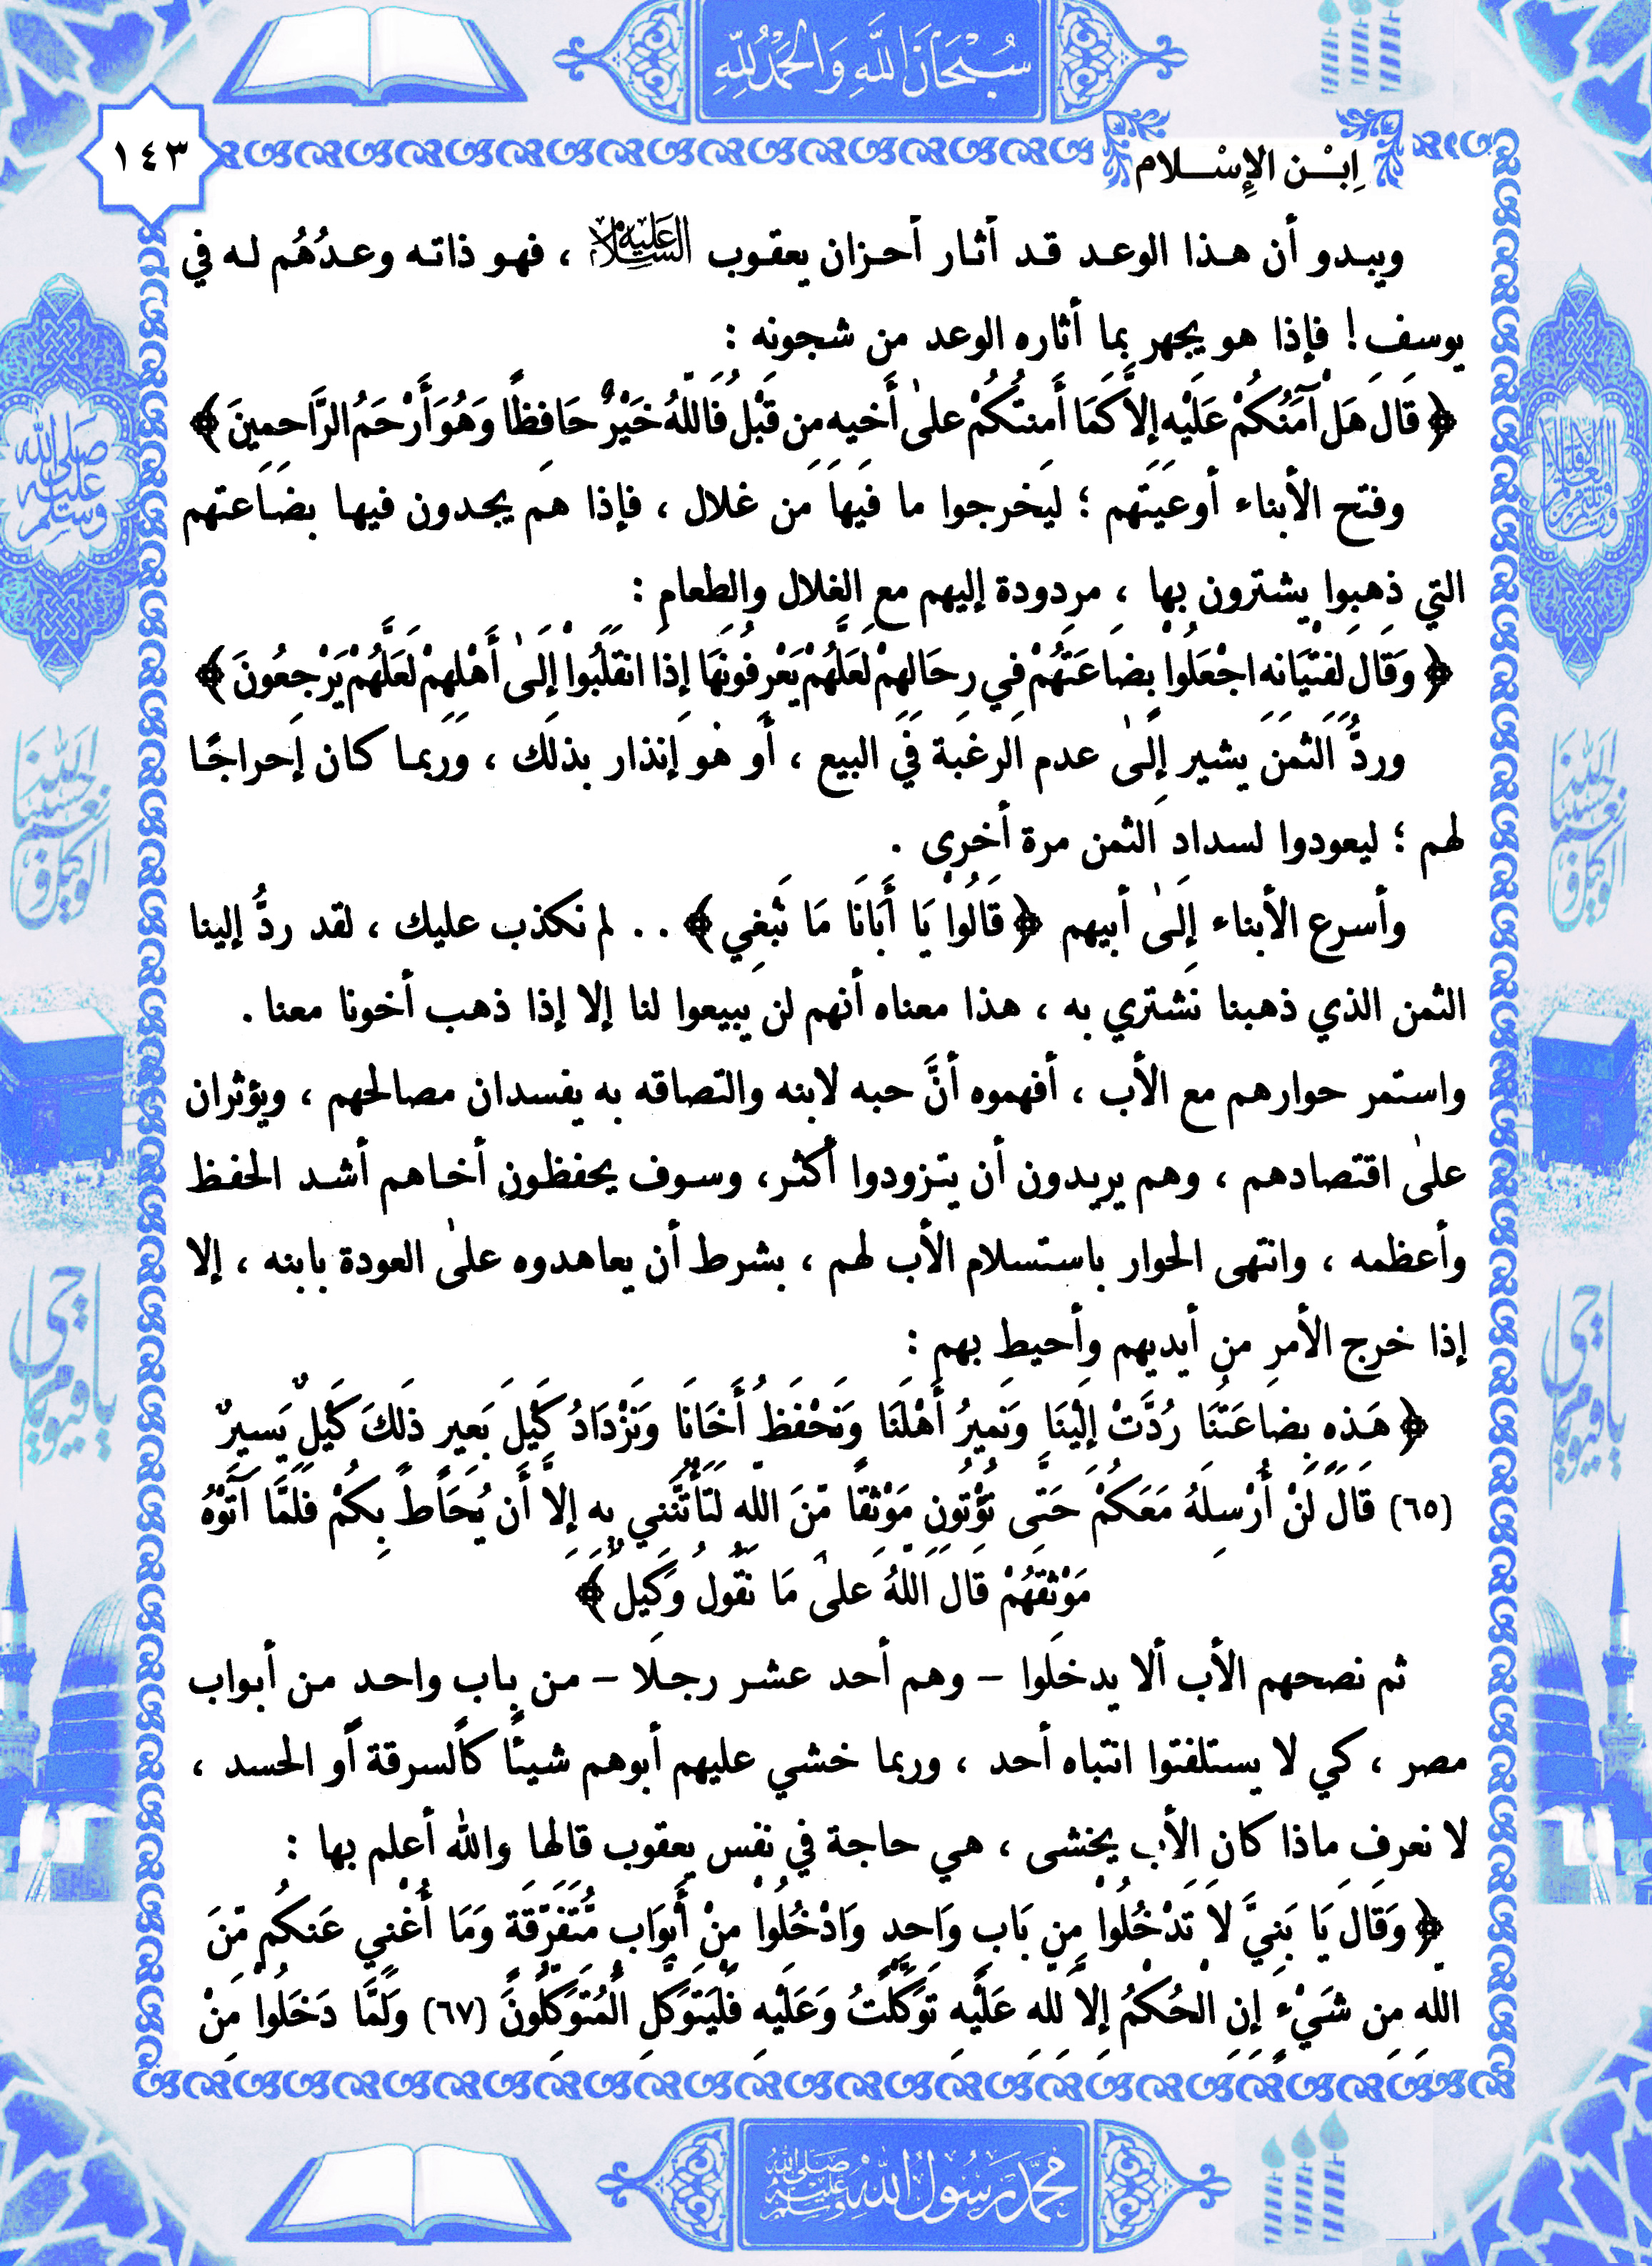 سُبْحَانَ اللَّهِ وَالْحَمْدُ لِلَّهِ
١٤٣
اِبْـن الإِسْـلام
ويبدو أن هذا الوعد قد أثار أحزان يعقوب عَلَيْهِ السَّلَام ، فهو ذاته وعدُهُم له في
يوسف! فإذا هو يجهر بما أثاره الوعد من شجونه :
﴿ قَالَ هَلْ آمَنُكُمْ عَلَيْهِ إِلاَّ كَمَا أَمِنتُكُمْ عَلَىٰ أَخِيهِ مِن قَبْلُ فَاللَّهُ خَيْرٌ حَافِظًا وَهُوَ أَرْحَمُ الرَّاحِمِينَ ﴾
وفتح الأبناء أوعيتهم ؛ ليخرجوا ما فيها من غلال ، فإذا هم يجدون فيها بضاعتهم
التي ذهبوا يشترون بها ، مردودة إليهم مع الغلال والطعام :
﴿ وَقَالَ لِفِتْيَانِهِ اجْعَلُوا بِضَاعَتَهُمْ فِي رِحَالِهِمْ لَعَلَّهُمْ يَعْرِفُونَهَا إِذَا انقَلَبُوا إِلَىٰ أَهْلِهِمْ لَعَلَّهُمْ يَرْجِعُونَ ﴾
وردُّ الثمن يشير إلىٰ عدم الرغبة في البيع ، أو هو إنذار بذلك ، وربما كان إحراجًا
لهم ؛ ليعودوا لسداد الثمن مرة أخرى .
وأسرع الأبناء إلىٰ أبيهم ﴿ قَالُوا يَا أَبَانَا مَا نَبْغِي ﴾ . . لم نكذب عليك ، لقد ردُّ إلينا
الثمن الذي ذهبنا نشتري به ، هذا معناه أنهم لن يبيعوا لنا إلا إذا ذهب أخونا معنا .
واستمر حوارهم مع الأب ، أفهموه أنَّ حبه لابنه والتصاقه به يفسدان مصالحهم ، ويؤثران
علىٰ اقتصادهم ، وهم يريدون أن يتزودوا أكثر، وسوف يحفظون أخاهم أشد الحفظ
وأعظمه ، وانتهى الحوار باستسلام الأب لهم ، بشرط أن يعاهدوه علىٰ العودة بابنه ، إلا
إذا خرج الأمر من أيديهم وأحيط بهم :
﴿ هَذِهِ بِضَاعَتُنَا رُدَّتْ إِلَيْنَا وَنَمِيرُ أَهْلَنَا وَنَحْفَظُ أَخَانَا وَنَزْدَادُ كَيْلَ بَعِيرٍ ذَلِكَ كَيْلٌ يَسِيرٌ
(٦٥) قَالَ لَنْ أُرْسِلَهُ مَعَكُمْ حَتَّى تُؤْتُونِ مَوْثِقًا مِّنَ اللَّهِ لَتَأْتُنَّنِي بِهِ إِلاَّ أَن يُحَاطَ بِكُمْ فَلَمَّا آتَوْهُ
مَوْثِقَهُمْ قَالَ اللَّهُ عَلَىٰ مَا نَقُولُ وَكِيلٌ ﴾
ثم نصحهم الأب ألا يدخلوا – وهم أحد عشر رجلا – من باب واحد من أبواب
مصر ، كي لا يستلفتوا انتباه أحد ، وربما خشي عليهم أبوهم شيئًا كالسرقة أو الحسد ،
لا نعرف ماذا كان الأب يخشى ، هي حاجة في نفس يعقوب قالها والله أعلم بها :
﴿ وَقَالَ يَا بَنِيَّ لاَ تَدْخُلُوا مِن بَابٍ وَاحِدٍ وَادْخُلُوا مِنْ أَبْوَابٍ مُّتَفَرِّقَةٍ وَمَا أُغْنِي عَنكُم مِّنَ
اللَّهِ مِن شَيْءٍ إِنِ الْحُكْمُ إِلاَّ لِلَّهِ عَلَيْهِ تَوَكَّلْتُ وَعَلَيْهِ فَلْيَتَوَكَّلِ الْمُتَوَكِّلُونَ (٦٧) وَلَمَّا دَخَلُوا مِنْ
صلى الله عليه وسلم
حسبنا الله ونعم الوكيل
يا حي يا قيوم
محمد رسول الله صلى الله عليه وسلم